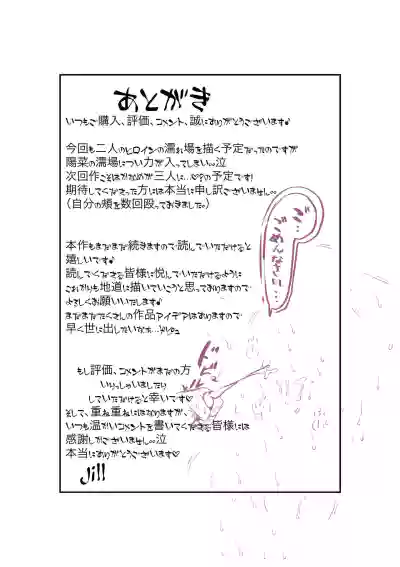 あとがき
いつもご購入、評価、コメント、誠にありがとうございます♪
今回も二人のヒロインの濡れ場を描く予定だったのですが
陽菜の濡場につい力が入ってしまい…泣
次回作こそはかなめが三人に…♡♡の予定です!
期待してくださった方には本当に申し訳ございません…
(自分の頬を数回殴っておきました。)
本作もまだまだ続きますので読んでいただけると
嬉しいです♪
読んでくださる皆様に悦んでいただけるように
これからも地道に描いていこうと思っておりますので
よろしくお願いいたします♪
まだまだたくさんの作品アイデアはありますので
早く世に出したいなぁ…
もし評価、コメントがまだの方
いらっしゃいましたら
していただけると幸いです♡
そして、重ね重ねにはなりますが、
いつも温かいコメントを書いてくださる皆様には
感謝しかございません…泣
本当にありがとうございます♡
Jill
ご…ごめんなさい…